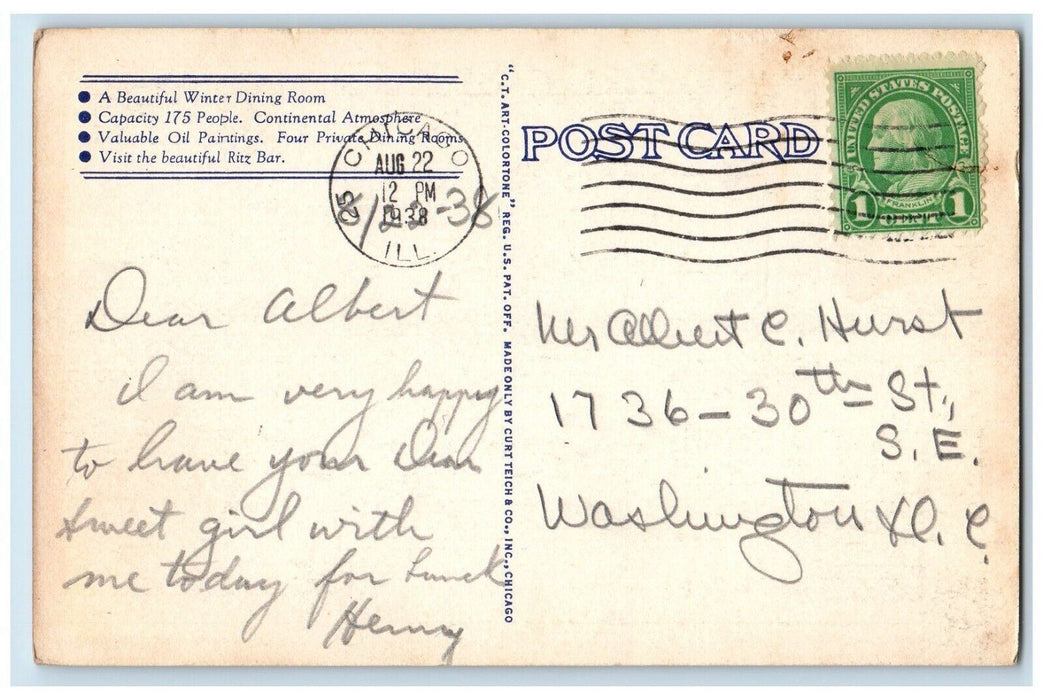 ● A Beautiful Winter Dining Room
● Capacity 175 People. Continental Atmosphere
● Valuable Oil Paintings. Four Private Dining Rooms
● Visit the beautiful Ritz Bar.
CHICAGO
25
AUG 22
12 PM
1938
ILL.
8/22-38
Dear Albert
I am very happy
to have your Dear
Sweet girl with
me today for lunch
Henry
"C.T. ART-COLORTONE" REG. U.S. PAT. OFF. MADE ONLY BY CURT TEICH & CO., INC., CHICAGO
POST CARD
UNITED STATES POSTAGE
FRANKLIN
1 CENT 1
Mr Albert C. Hurst
1736-30th St.,
S.E.
Washington D.C.